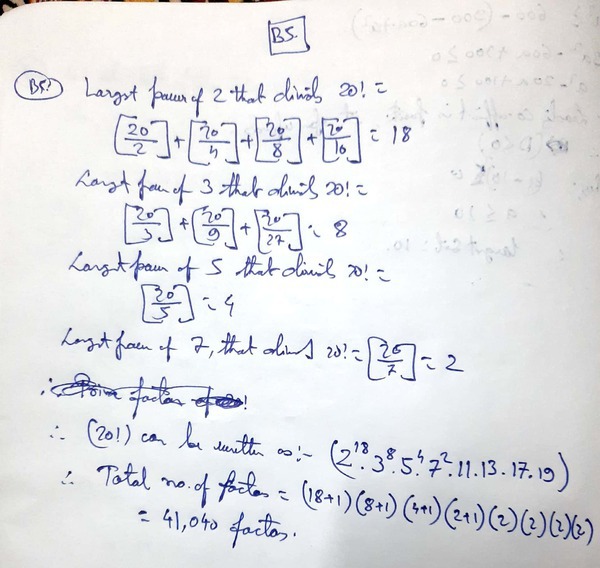 B5.
B5: Largst power of 2 that divids 20! =
[20/2] + [20/4] + [20/8] + [20/16] = 18
Largst power of 3 that divids 20! =
[20/3] + [20/9] + [20/27] = 8
Largst power of 5 that divids 20! =
[20/5] = 4
Largst power of 7, that divids 20! = [20/7] = 2
∴ factors
∴ (20!) can be written as:- (2¹⁸.3⁸.5⁴.7².11.13.17.19)
∴ Total no. of factos = (18+1)(8+1)(4+1)(2+1)(2)(2)(2)(2)
= 41,040 factos.